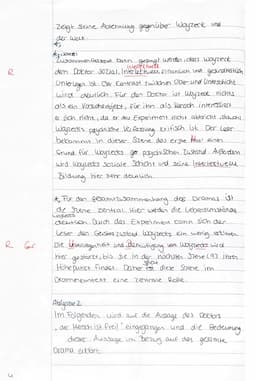 zeigt seine Abneigung gegenüber Woyzeck und
der Welt.
Zusammenfassend kann gesagt werden, dass Woyzeck
R
dem Doktor sozial, intellektuell finanziell und gesundheitlich
unterlegen ist. Der Kontrast zwischen Ober- und Unterschicht
wird deutlich. Für den Doktor ist Woyzeck nichts
als ein Versuchsobjekt, für ihn als Mensch interessiert
er sich nicht, da er das Experiment nicht abbricht, obwohl
Woyzecks psychische Verfassung kritisch ist. Der Leser
bekommt in dieser Szene das erste einen
Grund für Woyzecks psychischen Zustand. Außerdem
wird Woyzecks soziale Schicht und seine intellektuelle
Bildung hier sehr deutlich.
Für den Gesamtzusammenhang des Dramas ist
die Szene zentral. Hier werden die Lebensumstände
Woyzecks
deutlich. Durch das Experiment kann sich der
Leser den Geisteszustand Woyzecks ein wenig erklären.
R Gr
Die Unwissenheit und Demütigung von Woyzeck wird
hier gesteigert, bis sie in der nächsten Szene (9) ihren
Höhepunkt findet. Daher spielt diese Szene im
Dramenkontext eine zentrale Rolle.
Aufgabe 2
Im Folgenden wird auf die Aussage des Doctors
„der Mensch ist frei" eingegangen und die Bedeutung
dieser Aussage im Bezug auf das gesamte
Drama erklärt.